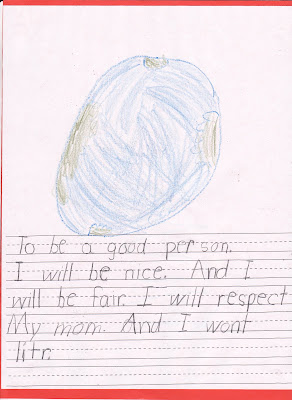 To be a good person.
I will be nice. And I
will be fair. I will respect
My mom. And I wont
litr.